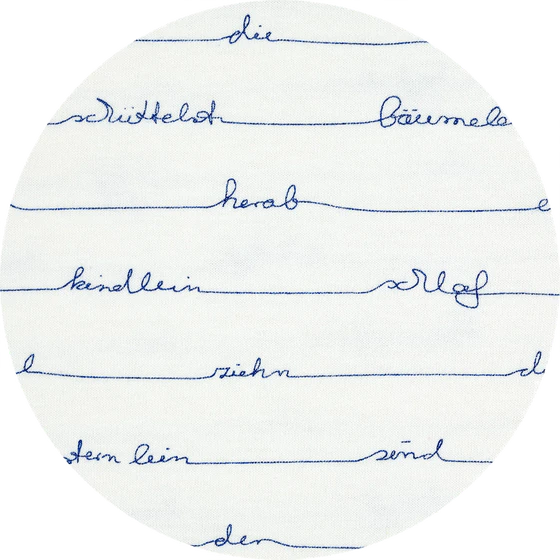 die
schüttelst bäumele
herab
kindlein schlaf
ziehn d
sternlein sind
der